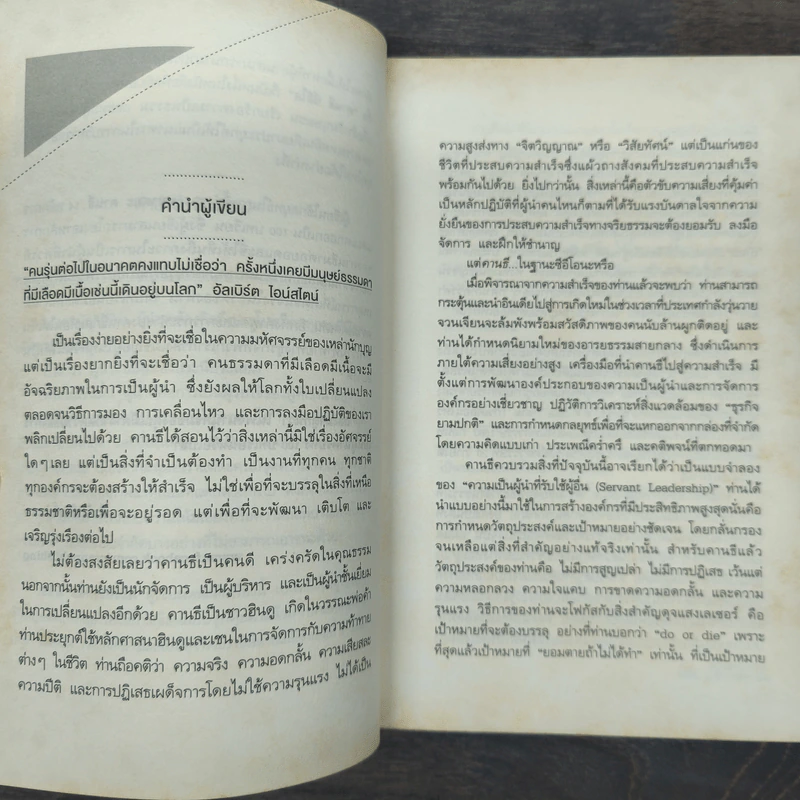 คำนำผู้เขียน
"คนรุ่นต่อไปในอนาคตคงแทบไม่เชื่อว่า ครั้งหนึ่งเคยมีมนุษย์ธรรมดา
ที่มีเลือดมีเนื้อเช่นนี้เดินอยู่บนโลก" อัลเบิร์ต ไอน์สไตน์
เป็นเรื่องง่ายอย่างยิ่งที่จะเชื่อในความมหัศจรรย์ของเหล่านักบุญ
แต่เป็นเรื่องยากยิ่งที่จะเชื่อว่า คนธรรมดาที่มีเลือดมีเนื้อจะมี
อัจฉริยภาพในการเป็นผู้นำ ซึ่งยังผลให้โลกทั้งใบเปลี่ยนแปลง
ตลอดจนวิธีการมอง การเคลื่อนไหว และการลงมือปฏิบัติของเรา
พลิกเปลี่ยนไปด้วย คานธีได้สอนไว้ว่าสิ่งเหล่านี้มิใช่เรื่องอัศจรรย์
ใดๆ เลย แต่เป็นสิ่งที่จำเป็นต้องทำ เป็นงานที่ทุกคน ทุกชาติ
ทุกองค์กรจะต้องสร้างให้สำเร็จ ไม่ใช่เพื่อที่จะบรรลุในสิ่งที่เหนือ
ธรรมชาติหรือเพื่อจะอยู่รอด แต่เพื่อที่จะพัฒนา เติบโต และ
เจริญรุ่งเรืองต่อไป
ไม่ต้องสงสัยเลยว่าคานธีเป็นคนดี เคร่งครัดในคุณธรรม
นอกจากนั้นท่านยังเป็นนักจัดการ เป็นผู้บริหาร และเป็นผู้นำชั้นเยี่ยม
ในการเปลี่ยนแปลงอีกด้วย คานธีเป็นชาวฮินดู เกิดในวรรณะพ่อค้า
ท่านประยุกต์ใช้หลักศาสนาฮินดูและเชนในการจัดการกับความท้าทาย
ต่างๆ ในชีวิต ท่านถือคติว่า ความจริง ความอดกลั้น ความเสียสละ
ความปีติ และการปฏิเสธเผด็จการโดยไม่ใช้ความรุนแรง ไม่ได้เป็น
ความสูงส่งทาง "จิตวิญญาณ" หรือ "วิสัยทัศน์" แต่เป็นแก่นของ
ชีวิตที่ประสบความสำเร็จซึ่งแผ้วถางสังคมที่ประสบความสำเร็จ
พร้อมกันไปด้วย ยิ่งไปกว่านั้น สิ่งเหล่านี้คือตัวขับความเสี่ยงที่คุ้มค่า
เป็นหลักปฏิบัติที่ผู้นำคนไหนก็ตามที่ได้รับแรงบันดาลใจจากความ
ยั่งยืนของการประสบความสำเร็จทางจริยธรรมจะต้องยอมรับ ลงมือ
จัดการ และฝึกให้ชำนาญ
แต่คานธี...ในฐานะซีอีโอนะหรือ
เมื่อพิจารณาจากความสำเร็จของท่านแล้วจะพบว่า ท่านสามารถ
กระตุ้นและนำอินเดียไปสู่การเกิดใหม่ในช่วงเวลาที่ประเทศกำลังวุ่นวาย
จวนเจียนจะล้มพังพร้อมสวัสดิภาพของคนนับล้านผูกติดอยู่ และ
ท่านได้กำหนดนิยามใหม่ของอารยธรรมสายกลาง ซึ่งดำเนินการ
ภายใต้ความเสี่ยงอย่างสูง เครื่องมือที่นำคานธีไปสู่ความสำเร็จ มี
ตั้งแต่การพัฒนาองค์ประกอบของความเป็นผู้นำและการจัดการ
องค์กรอย่างเชี่ยวชาญ ปฏิวัติการวิเคราะห์สิ่งแวดล้อมของ "ธุรกิจ
ยามปกติ" และการกำหนดกลยุทธ์เพื่อที่จะแหกออกจากกล่องที่จำกัด
โดยความคิดแบบเก่า ประเพณีคร่ำครึ และคติพจน์ที่ตกทอดมา
คานธีควบรวมสิ่งที่ปัจจุบันนี้อาจเรียกได้ว่าเป็นแบบจำลอง
ของ "ความเป็นผู้นำที่รับใช้ผู้อื่น (Servant Leadership)" ท่านได้
นำแบบอย่างนี้มาใช้ในการสร้างองค์กรที่มีประสิทธิภาพสูงสุดนั่นคือ
การกำหนดวัตถุประสงค์และเป้าหมายอย่างชัดเจน โดยกลั่นกรอง
จนเหลือแต่สิ่งที่สำคัญอย่างแท้จริงเท่านั้น สำหรับคานธีแล้ว
วัตถุประสงค์ของท่านคือ ไม่มีการสูญเปล่า ไม่มีการปฏิเสธ เว้นแต่
ความหลอกลวง ความใจแคบ การขาดความอดกลั้น และความ
รุนแรง วิธีการของท่านจะโฟกัสกับสิ่งสำคัญดุจแสงเลเซอร์ คือ
เป้าหมายที่จะต้องบรรลุ อย่างที่ท่านบอกว่า "do or die" เพราะ
ที่สุดแล้วเป้าหมายที่ "ยอมตายถ้าไม่ได้ทำ" เท่านั้น ที่เป็นเป้าหมาย